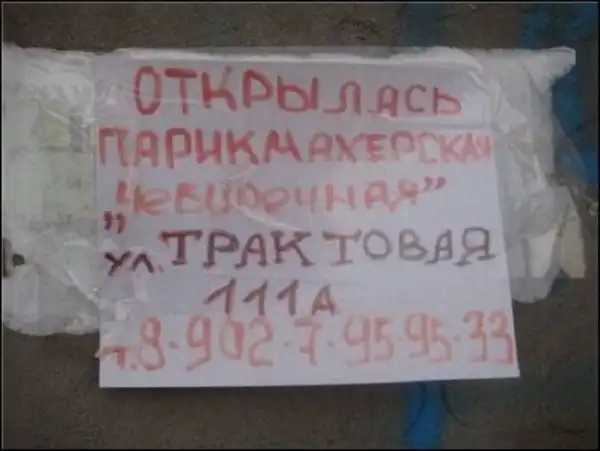 ОТКРЫЛАСЬ
ПАРИКМАХЕРСКАЯ
„Чевидечная”
ул. ТРАКТОВАЯ
111А
т. 8-902-7-95-95-33